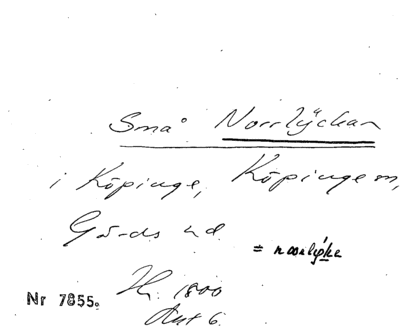 Små Norrlyckan
i Köpinge, Köpinge sn,
Gärds hd.
= norrlycke
Nr 7855. Hr. 1800
Akt 6.